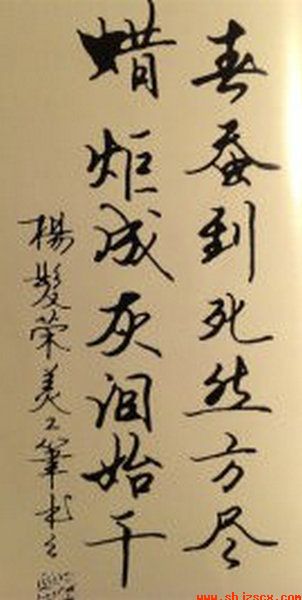 春蚕到死絲方尽
蜡炬成灰泪始干
楊髮荣美工筆书之
www.shizscx.com